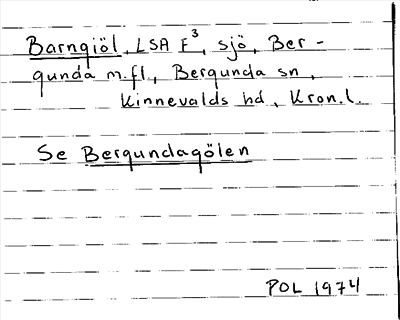 Barngiöl, LSA F³, sjö, Ber-
gunda m.fl., Bergunda sn,
Kinnevalds hd, Kron.l.
Se Bergundagölen
POL 1974